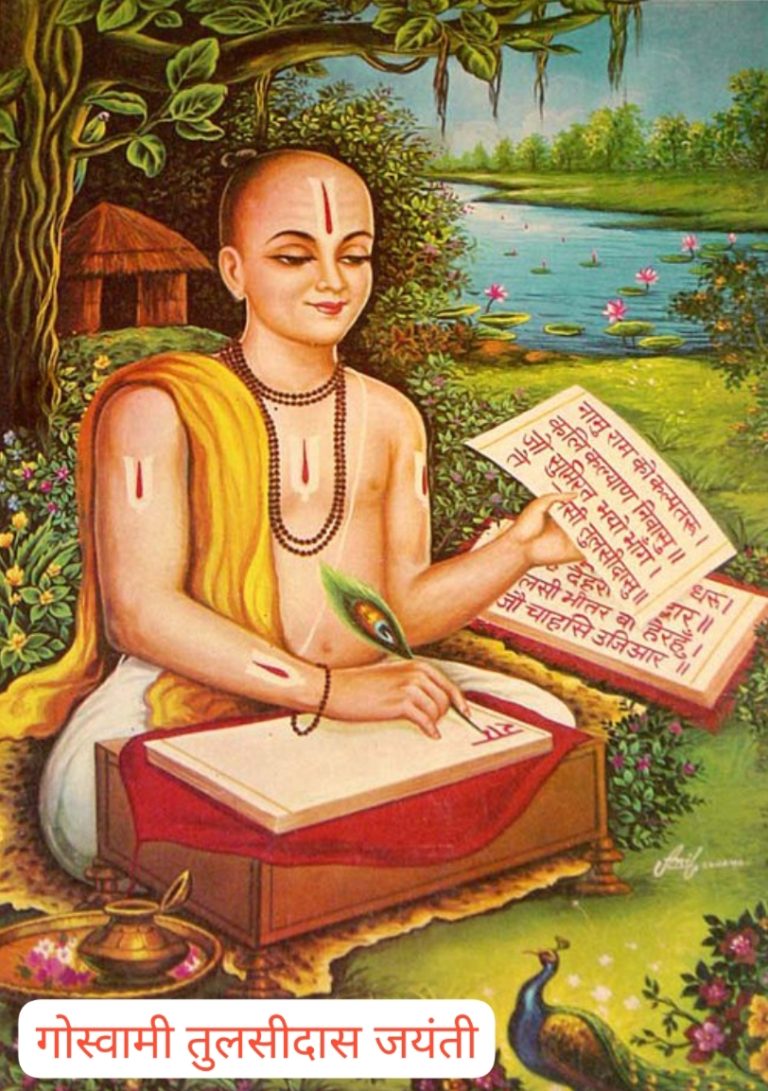 नामु राम को कल्पतरू।
कलि कल्याण निवासु॥
जो सुमिरत भयो भाँग।
तें तुलसी तुलसीदासु॥
धरू।
तुलसी भीतर बाहेरहुँ।
जौ चाहसि उजिआर॥
राम
गोस्वामी तुलसीदास जयंती